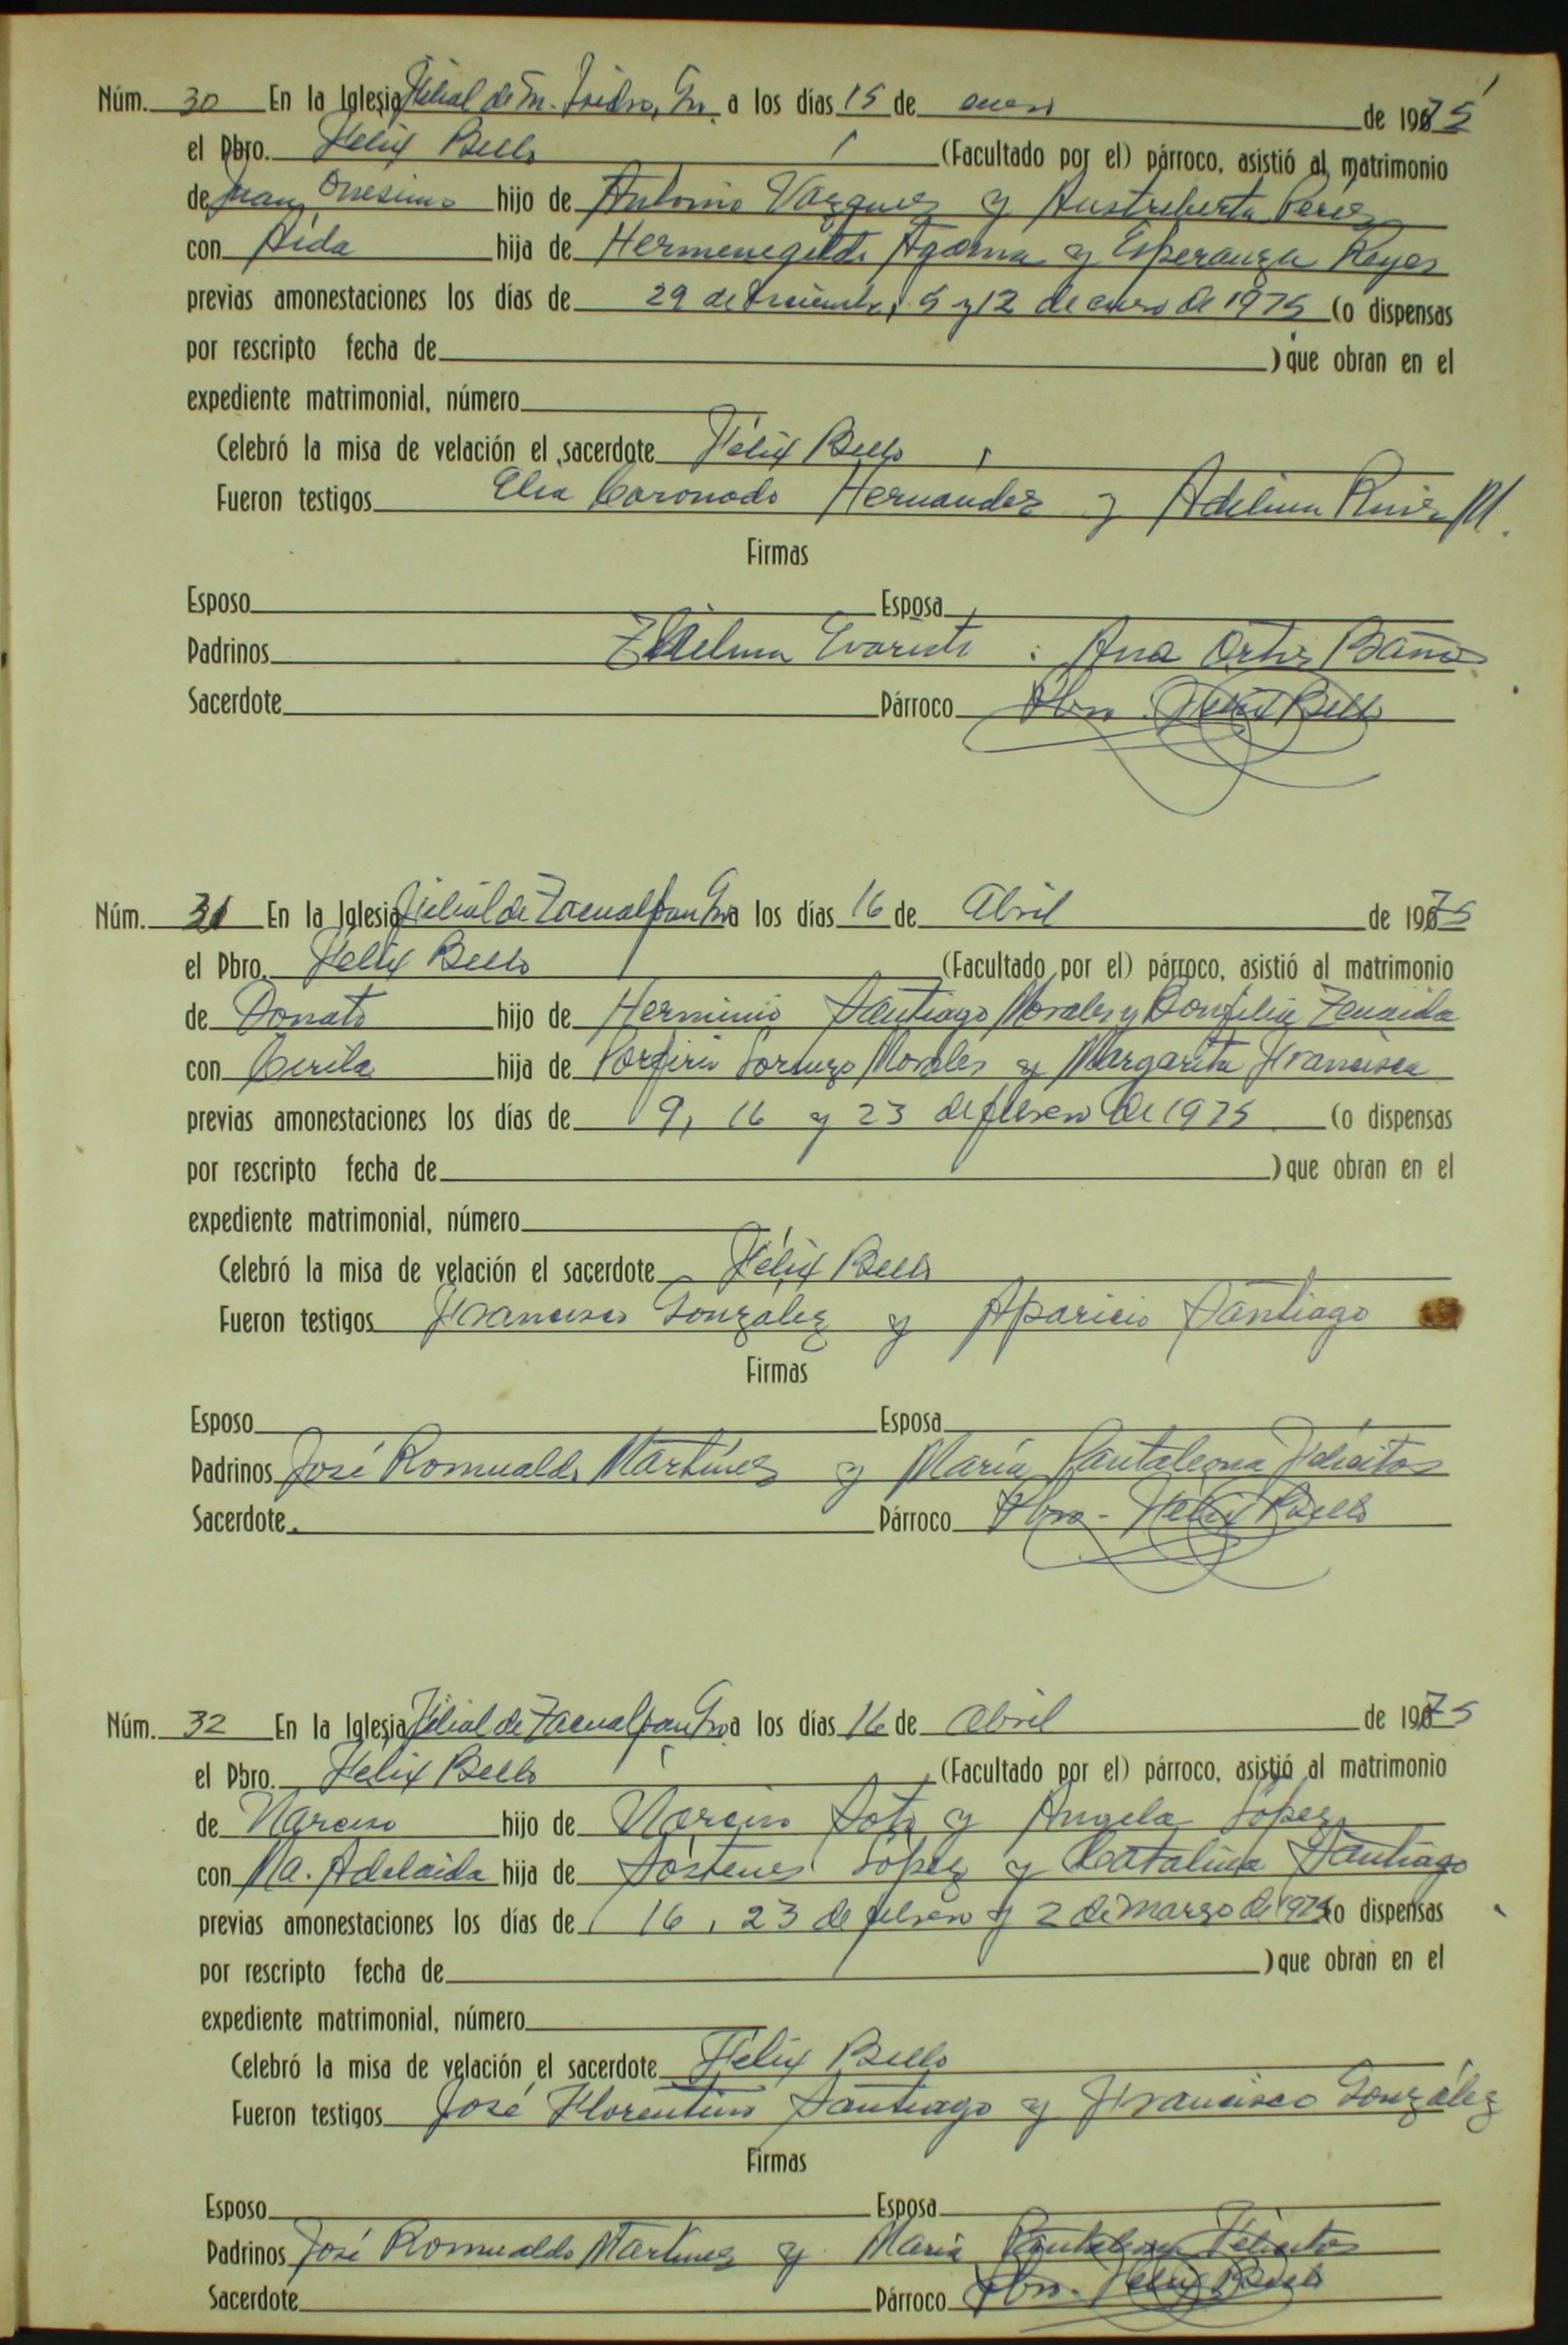 Núm. 30 En la Iglesia Filial de Sn. Isidro, Gro. a los días 15 de enero de 1975
el Pbro. Félix Bello (Facultado por el) párroco, asistió al matrimonio
de Juan Onesimo hijo de Antonio Vazquez y Austreberta Perez
con Aida hija de Hermenegildo y Esperanza Reyes
previas amonestaciones los días de 29 de diciembre, 5 y 12 de enero de 1975 (o dispensas
por rescripto fecha de ) que obran en el
expediente matrimonial, número
Celebró la misa de velación el sacerdote Félix Bello
Fueron testigos Elia Coronado Hernandez y Adelina Ruiz M.
Firmas
Esposo Esposa
Padrinos Evaristo Ana Ortiz Baños
Sacerdote Párroco Pbro. Félix Bello
Núm. 31 En la Iglesia Filial de Zacualpan Gro a los días 16 de Abril de 1975
el Pbro. Félix Bello (Facultado por el) párroco, asistió al matrimonio
de Donato hijo de Herminio Santiago Morales y Bonfilia Zenaida
con Cirila hija de Porfirio Lorenzo Morales y Margarita Francisca
previas amonestaciones los días de 9, 16 y 23 de febrero de 1975 (o dispensas
por rescripto fecha de ) que obran en el
expediente matrimonial, número
Celebró la misa de velación el sacerdote Félix Bello
Fueron testigos Francisco González y Aparicio Santiago
Firmas
Esposo Esposa
Padrinos José Romualdo Martínez y María Pantaleona Felícitas
Sacerdote Párroco Pbro. Félix Bello
Núm. 32 En la Iglesia Filial de Zacualpan Gro a los días 16 de Abril de 1975
el Pbro. Félix Bello (Facultado por el) párroco, asistió al matrimonio
de Narciso hijo de Narciso Soto y Angela López
con Ma. Adelaida hija de Sóstenes López y Catalina Santiago
previas amonestaciones los días de 16, 23 de febrero y 2 de marzo de 1975 (o dispensas
por rescripto fecha de ) que obran en el
expediente matrimonial, número
Celebró la misa de velación el sacerdote Félix Bello
Fueron testigos José Florentino Santiago y Francisco González
Firmas
Esposo Esposa
Padrinos José Romualdo Martinez y María Pantaleona Felícitas
Sacerdote Párroco Pbro. Félix Bello